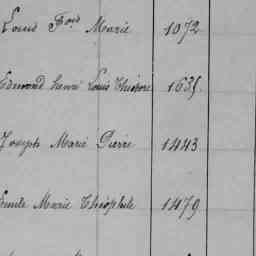 Louis F.ois Marie 1072
Edmond henri Louis Théodore 1635
Joseph Marie Pierre 1443
Emile Marie Théophile 1479